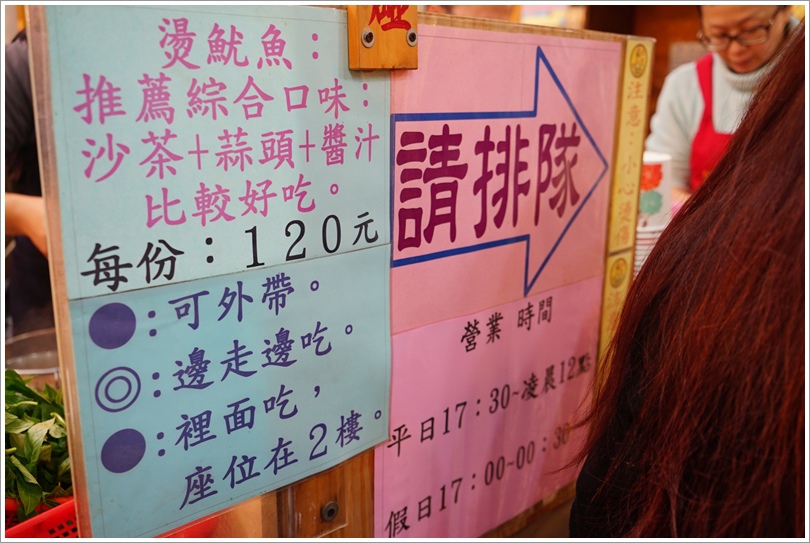 燙魷魚：
推薦綜合口味：
沙茶+蒜頭+醬汁
比較好吃。
每份：120元
●：可外帶。
◎：邊走邊吃。
●：裡面吃，
座位在2樓。
請排隊
營業 時間
平日17：30~凌晨12點
假日17：00~00：30
注意：小心燙傷